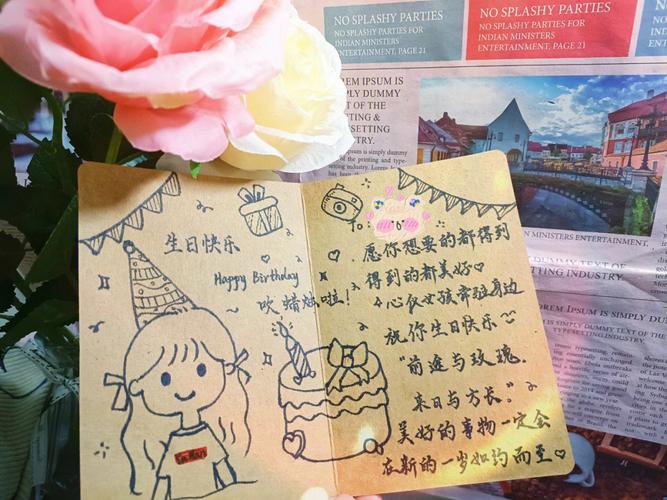 NO SPLASHY PARTIES
NO SPLASHY PARTIES FOR
INDIAN MINISTERS
ENTERTAINMENT, PAGE 21
NO SPLASHY PARTIES
NO SPLASHY PARTIES FOR
INDIAN MINISTERS
ENTERTAINMENT, PAGE 21
REM IPSUM IS
PLY DUMMY
T OF THE
TING &
SETTING
STRY.
psum is simply dummy
the printing and type-
INDIAN MINISTERS ENTERTAINMENT,
INDUSTRY.
LOREM IPSUM IS SIMPLY DU
生日快乐
Happy Birthday
~ 吹蜡烛啦!
To:
愿你想要的都得到
得到的都美好♡
心仪女孩 身边
祝你生日快乐
"前途与玫瑰,
来日与方长。"
美好的事物一定会
在新的一岁如约而至♡